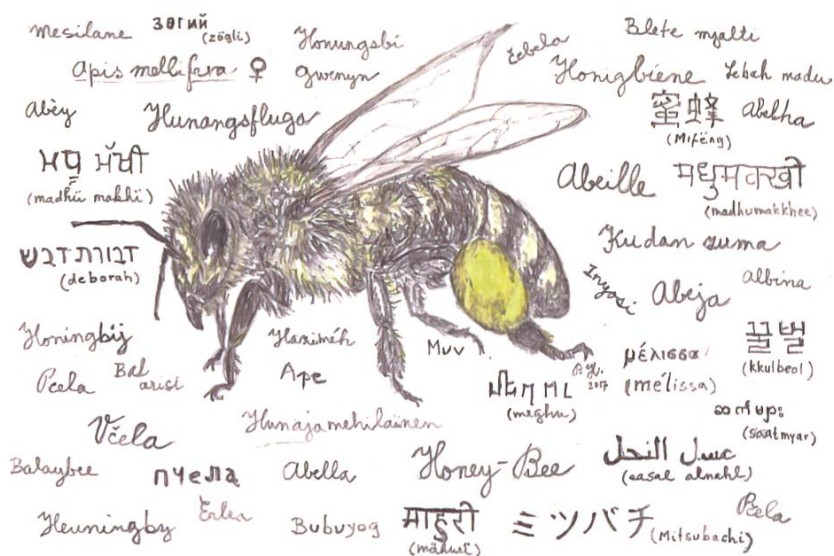 Mesilane
зөгий
(zögii)
Honungsbi
Čebela
Blete mjalti
Apis mellifera ♀
Gwenyn
Honigbiene
Lebah madu
Abèy
Hunangsfluga
蜜蜂
(Mifēng)
Abelha
(madhū makhī)
Abeille
मधुमक्खी
(madhumakkhee)
דבורת דבש
(deborah)
Kudan zuma
Inyosi
Abeja
Albina
Honingbij
Muv
μέλισσα
(mélissa)
꿀벌
(kkulbeol)
Pčela
Bal
arısı
Ape
2017
(meghu)
Včela
Hunajamehiläinen
(saatmyar)
Balaybee
пчела
Abella
Honey-Bee
عسل النحل
(easal alnahl)
Heuningby
Erlea
Bubuyog
माहुरी
(māhurī)
ミツバチ
(Mitsubachi)
Pčela